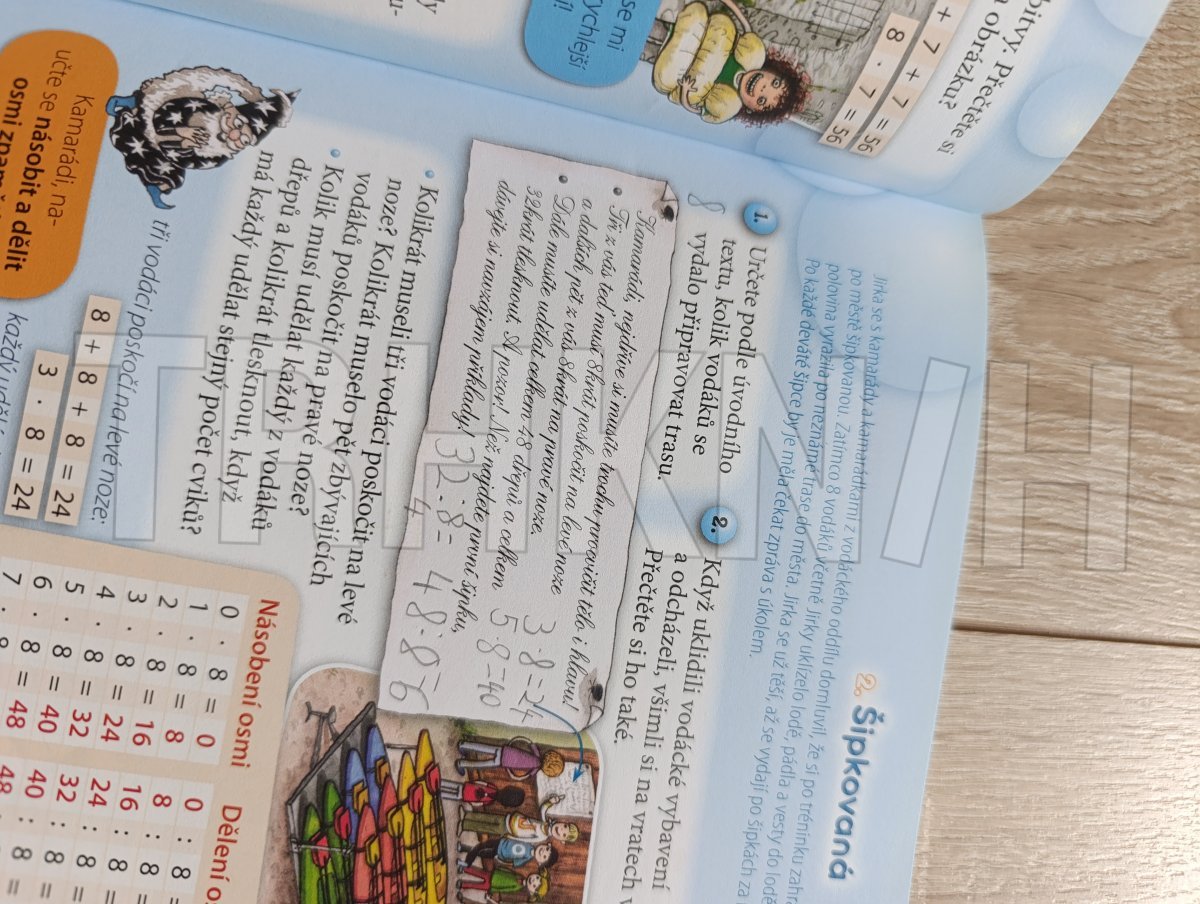 bitvy. Přečtěte si
obrázku?
+ 7 + 7 = 56
8 · 7 = 56
se mi
ychlejší
2. Šipkovaná
Jirka se s kamarády a kamarádkami z vodáckého oddílu domluvil, že si po tréninku zahr
po městě šipkovanou. Zatímco 8 vodáků včetně Jirky uklízelo lodě, pádla a vesty do lodě
polovina vyrazila po neznámé trase do města. Jirka se už těší, až se vydají po šipkách za
Po každé deváté šipce by je měla čekat zpráva s úkolem.
1. Určete podle úvodního
textu, kolik vodáků se
vydalo připravovat trasu.
8
2. Když uklidili vodácké vybavení
a odcházeli, všimli si na vratech
Přečtěte si ho také.
Kamarádi, nejdříve si musíte trochu procvičit tělo i hlavu!
• Tři z vás teď musí 8krát poskočit na levé noze
a dalších pět z vás 8krát na pravé noze.
• Dále musíte udělat celkem 48 dřepů a celkem
32krát tlesknout. A pozor! Než najdete první šipku,
dávejte si navzájem příklady!
3·8=24
5·8=40
32:8=
4
48:8=
6
• Kolikrát museli tři vodáci poskočit na levé
noze? Kolikrát muselo pět zbývajících
vodáků poskočit na pravé noze?
• Kolik musí udělat každý z vodáků
dřepů a kolikrát tlesknout, když
má každý udělat stejný počet cviků?
tři vodáci poskočí na levé noze:
8 + 8 + 8 = 24
3 · 8 = 24
Kamarádi, na-
učte se násobit a dělit
osmi
Násobení osmi
0 · 8 = 0
1 · 8 = 8
2 · 8 = 16
3 · 8 = 24
4 · 8 = 32
5 · 8 = 40
6 · 8 = 48
Dělení
0 : 8 =
8 : 8 =
16 : 8 =
24 : 8 =
32 : 8 =
40 : 8 =